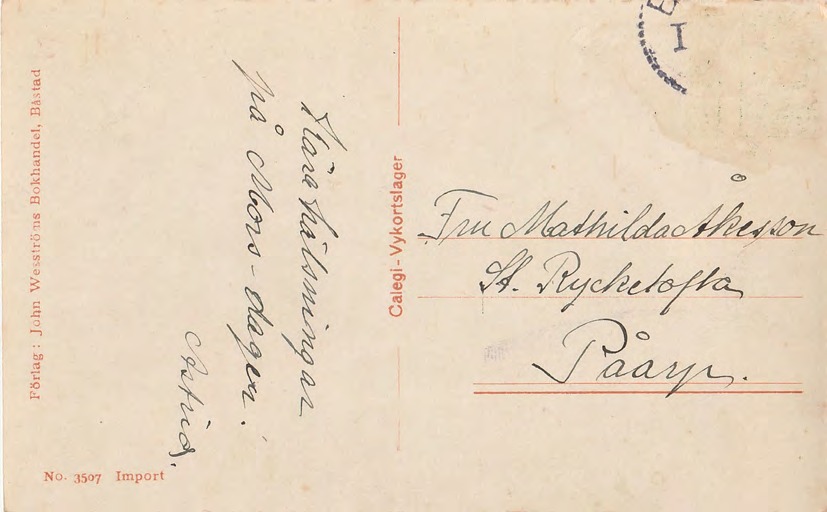 Kära hälsningar
på Mors-dagen!
Astrid.
Fru Mathilda Åkesson
St. Ryckelofta
Påarp.
Calegi-Vykortslager
Förlag: John Wesströms Bokhandel, Båstad
No. 3507 Import